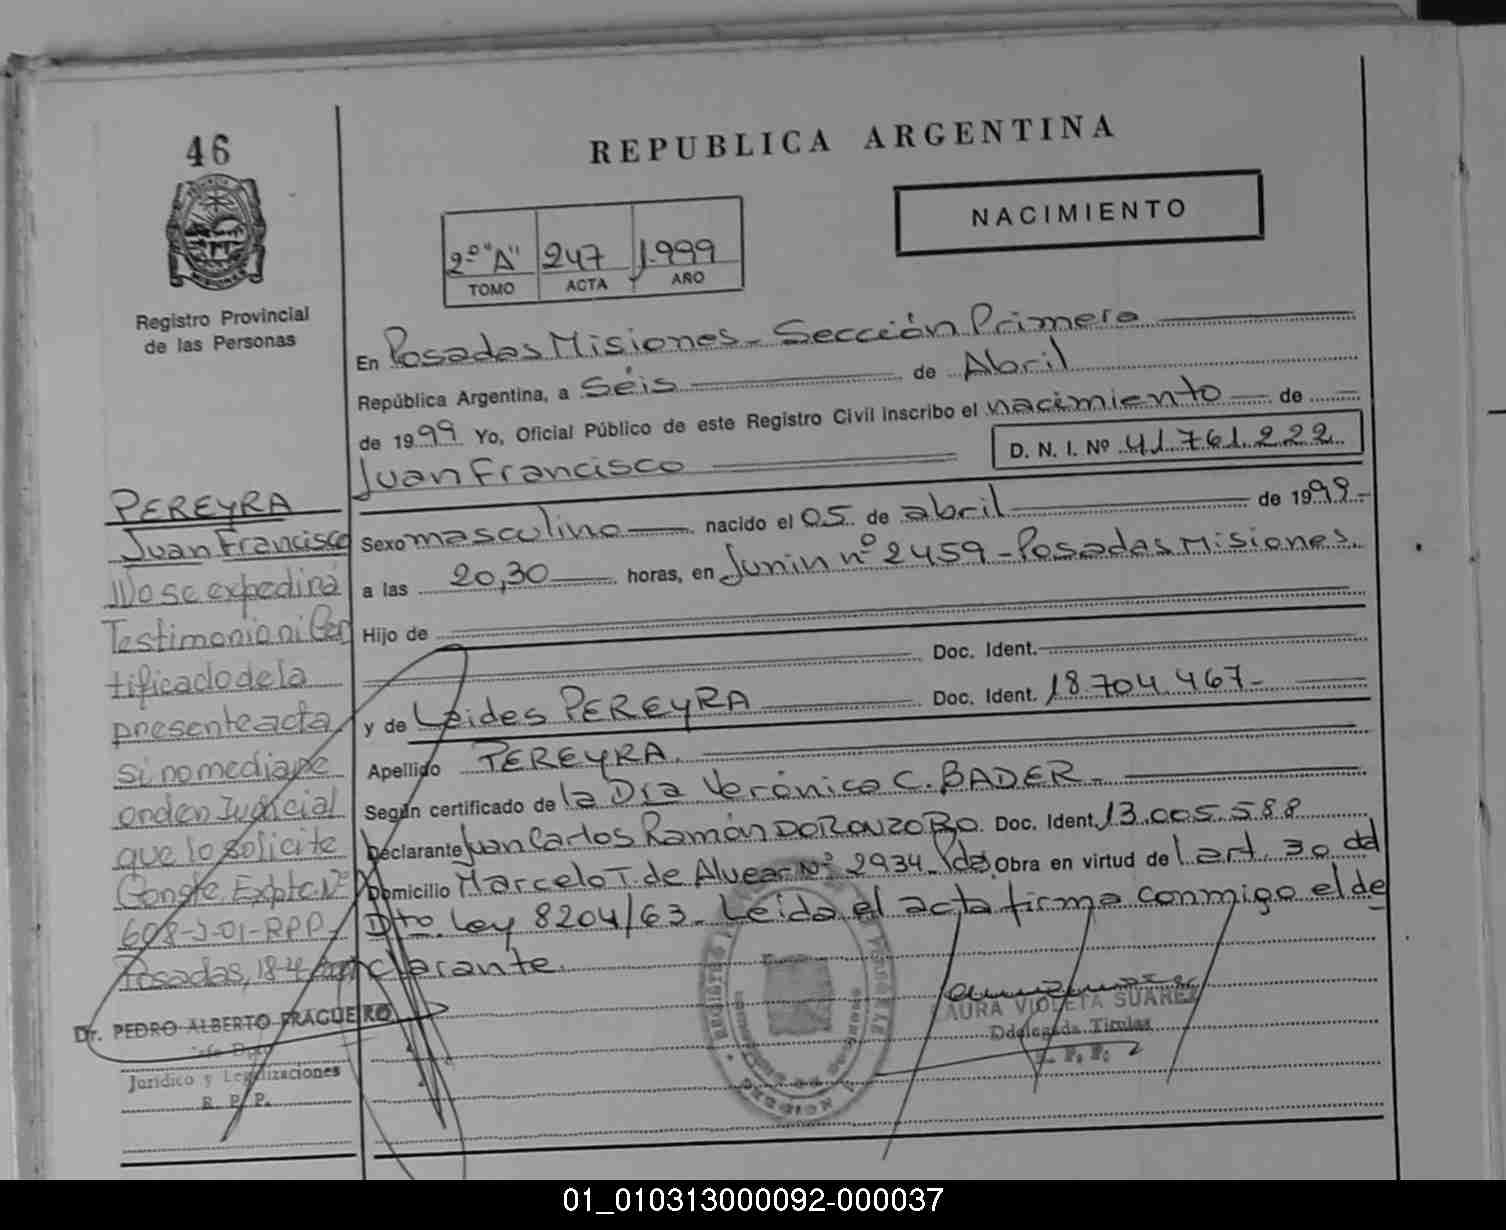 46
REPUBLICA ARGENTINA
NACIMIENTO
2º "A" 247 1.999
TOMO ACTA AÑO
Registro Provincial
de las Personas
En Posadas Misiones - Sección Primera
República Argentina, a Séis de Abril
de 1999 Yo, Oficial Público de este Registro Civil Inscribo el nacimiento de
Juan Francisco D. N. I. Nº 41.761.222
Sexo masculino nacido el 05 de abril de 1999-
a las 20,30 horas, en Junin nº 2459 - Posadas Misiones.
Hijo de
Doc. Ident.
y de Leides PEREYRA Doc. Ident. 18.704.467-
Apellido PEREYRA.
Según certificado de la Dra Verónica C. BADER-
Declarante Juan Carlos Ramón DORONZORO. Doc. Ident. 13.005.588
Domicilio Marcelo T. de Alvear Nº 2934 Pdas. Obra en virtud de l art. 30 del
Dto. Ley 8204/63 - Leída el acta firma conmigo el de
clarante.
PEREYRA
Juan Francisco
No se expedirá
Testimonio ni Cer
tificado de la
presente acta
si no media pe
orden Judicial
que lo solicite
Conste Expte. Nº
608-J-01-RPP-
Posadas, 18-4
Dr. PEDRO ALBERTO FRAGUEIRO
Jefe Dpto.
Jurídico y Legalizaciones
R. P. P.
LAURA VIOLETA SUAREZ
Ddelegada Titular
R. P. P.
01_010313000092-000037